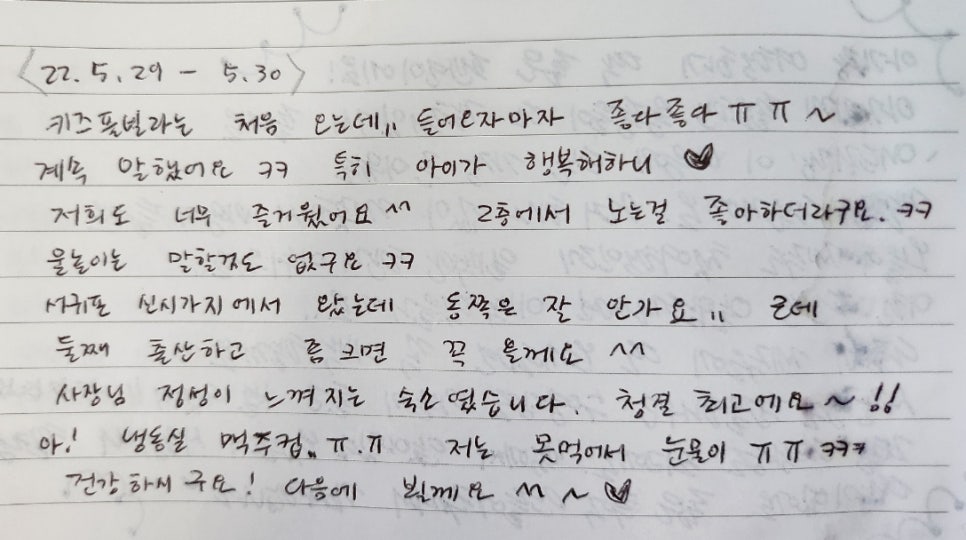 <22.5.29 - 5.30>
키즈풀빌라는 처음 오는데,, 들어오자마자 좋다좋다 ㅠㅠ ~
계속 말했어요 ㅋㅋ 특히 아이가 행복해하니 ♥
저희도 너무 즐거웠어요^^ 2층에서 노는걸 좋아하더라구요. ㅋㅋ
물놀이는 말할것도 없구요 ㅋㅋ
서귀포 신시가지에서 왔는데 동쪽은 잘 안가요,, 근데
둘째 출산하고 좀 크면 꼭 올께요 ^^
사장님 정성이 느껴지는 숙소였습니다. 청결 최고에요~!!
아! 냉동실 맥주컵,, ㅠ.ㅠ 저는 못먹어서 눈물이 ㅠㅠ ㅋㅋㅋ
건강하시구요! 다음에 뵐께요 ^^ ~ ♥